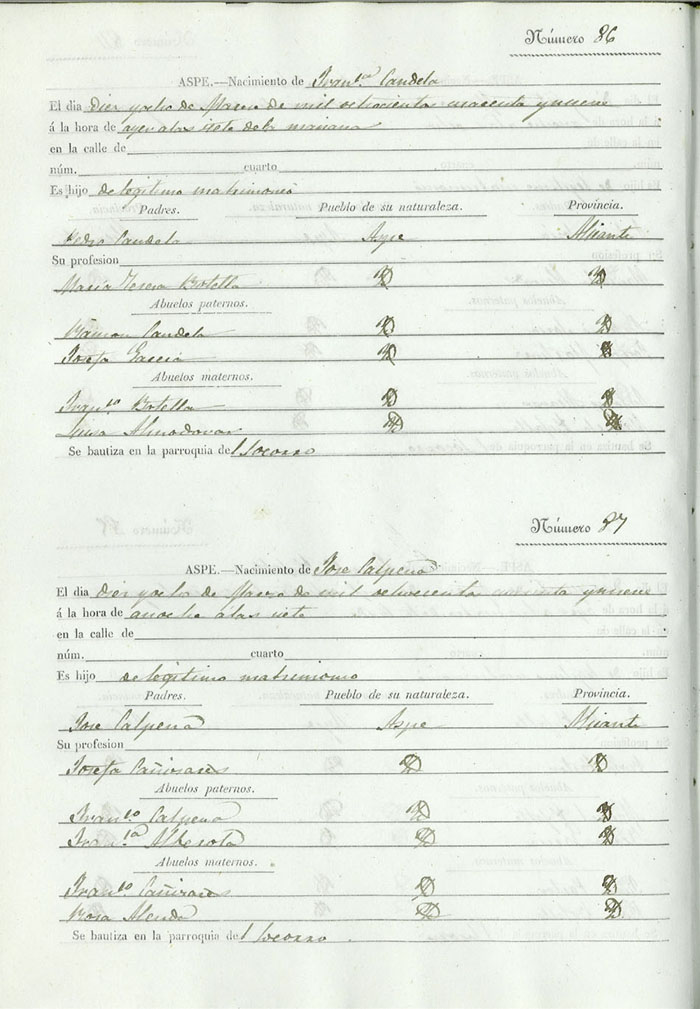 Número 86
ASPE.—Nacimiento de Fran.ca Candela
El dia Diez y ocho de Marzo de mil ochocientos cuarenta y nueve
á la hora de ayer a las siete de la mañana
en la calle de
núm. cuarto
Es hijo de legitimo matrimonio
Padres. Pueblo de su naturaleza. Provincia.
Pedro Candela Aspe Alicante
Su profesion
Maria Teresa Botella D D
Abuelos paternos.
Ramon Candela D D
Josefa Garcia D D
Abuelos maternos.
Fran.co Botella D D
Luisa Almodovar D D
Se bautiza en la parroquia del Socorro
Número 87
ASPE.—Nacimiento de Jose Calpena
El dia Diez y ocho de Marzo de mil ochocientos cuarenta y nueve
á la hora de anoche a las siete
en la calle de
núm. cuarto
Es hijo de legitimo matrimonio
Padres. Pueblo de su naturaleza. Provincia.
Jose Calpena Aspe Alicante
Su profesion
Josefa Cañizares D D
Abuelos paternos.
Fran.co Calpena D D
Fran.ca D D
Abuelos maternos.
Fran.co Cañizares D D
Rosa Alenda D D
Se bautiza en la parroquia del Socorro.